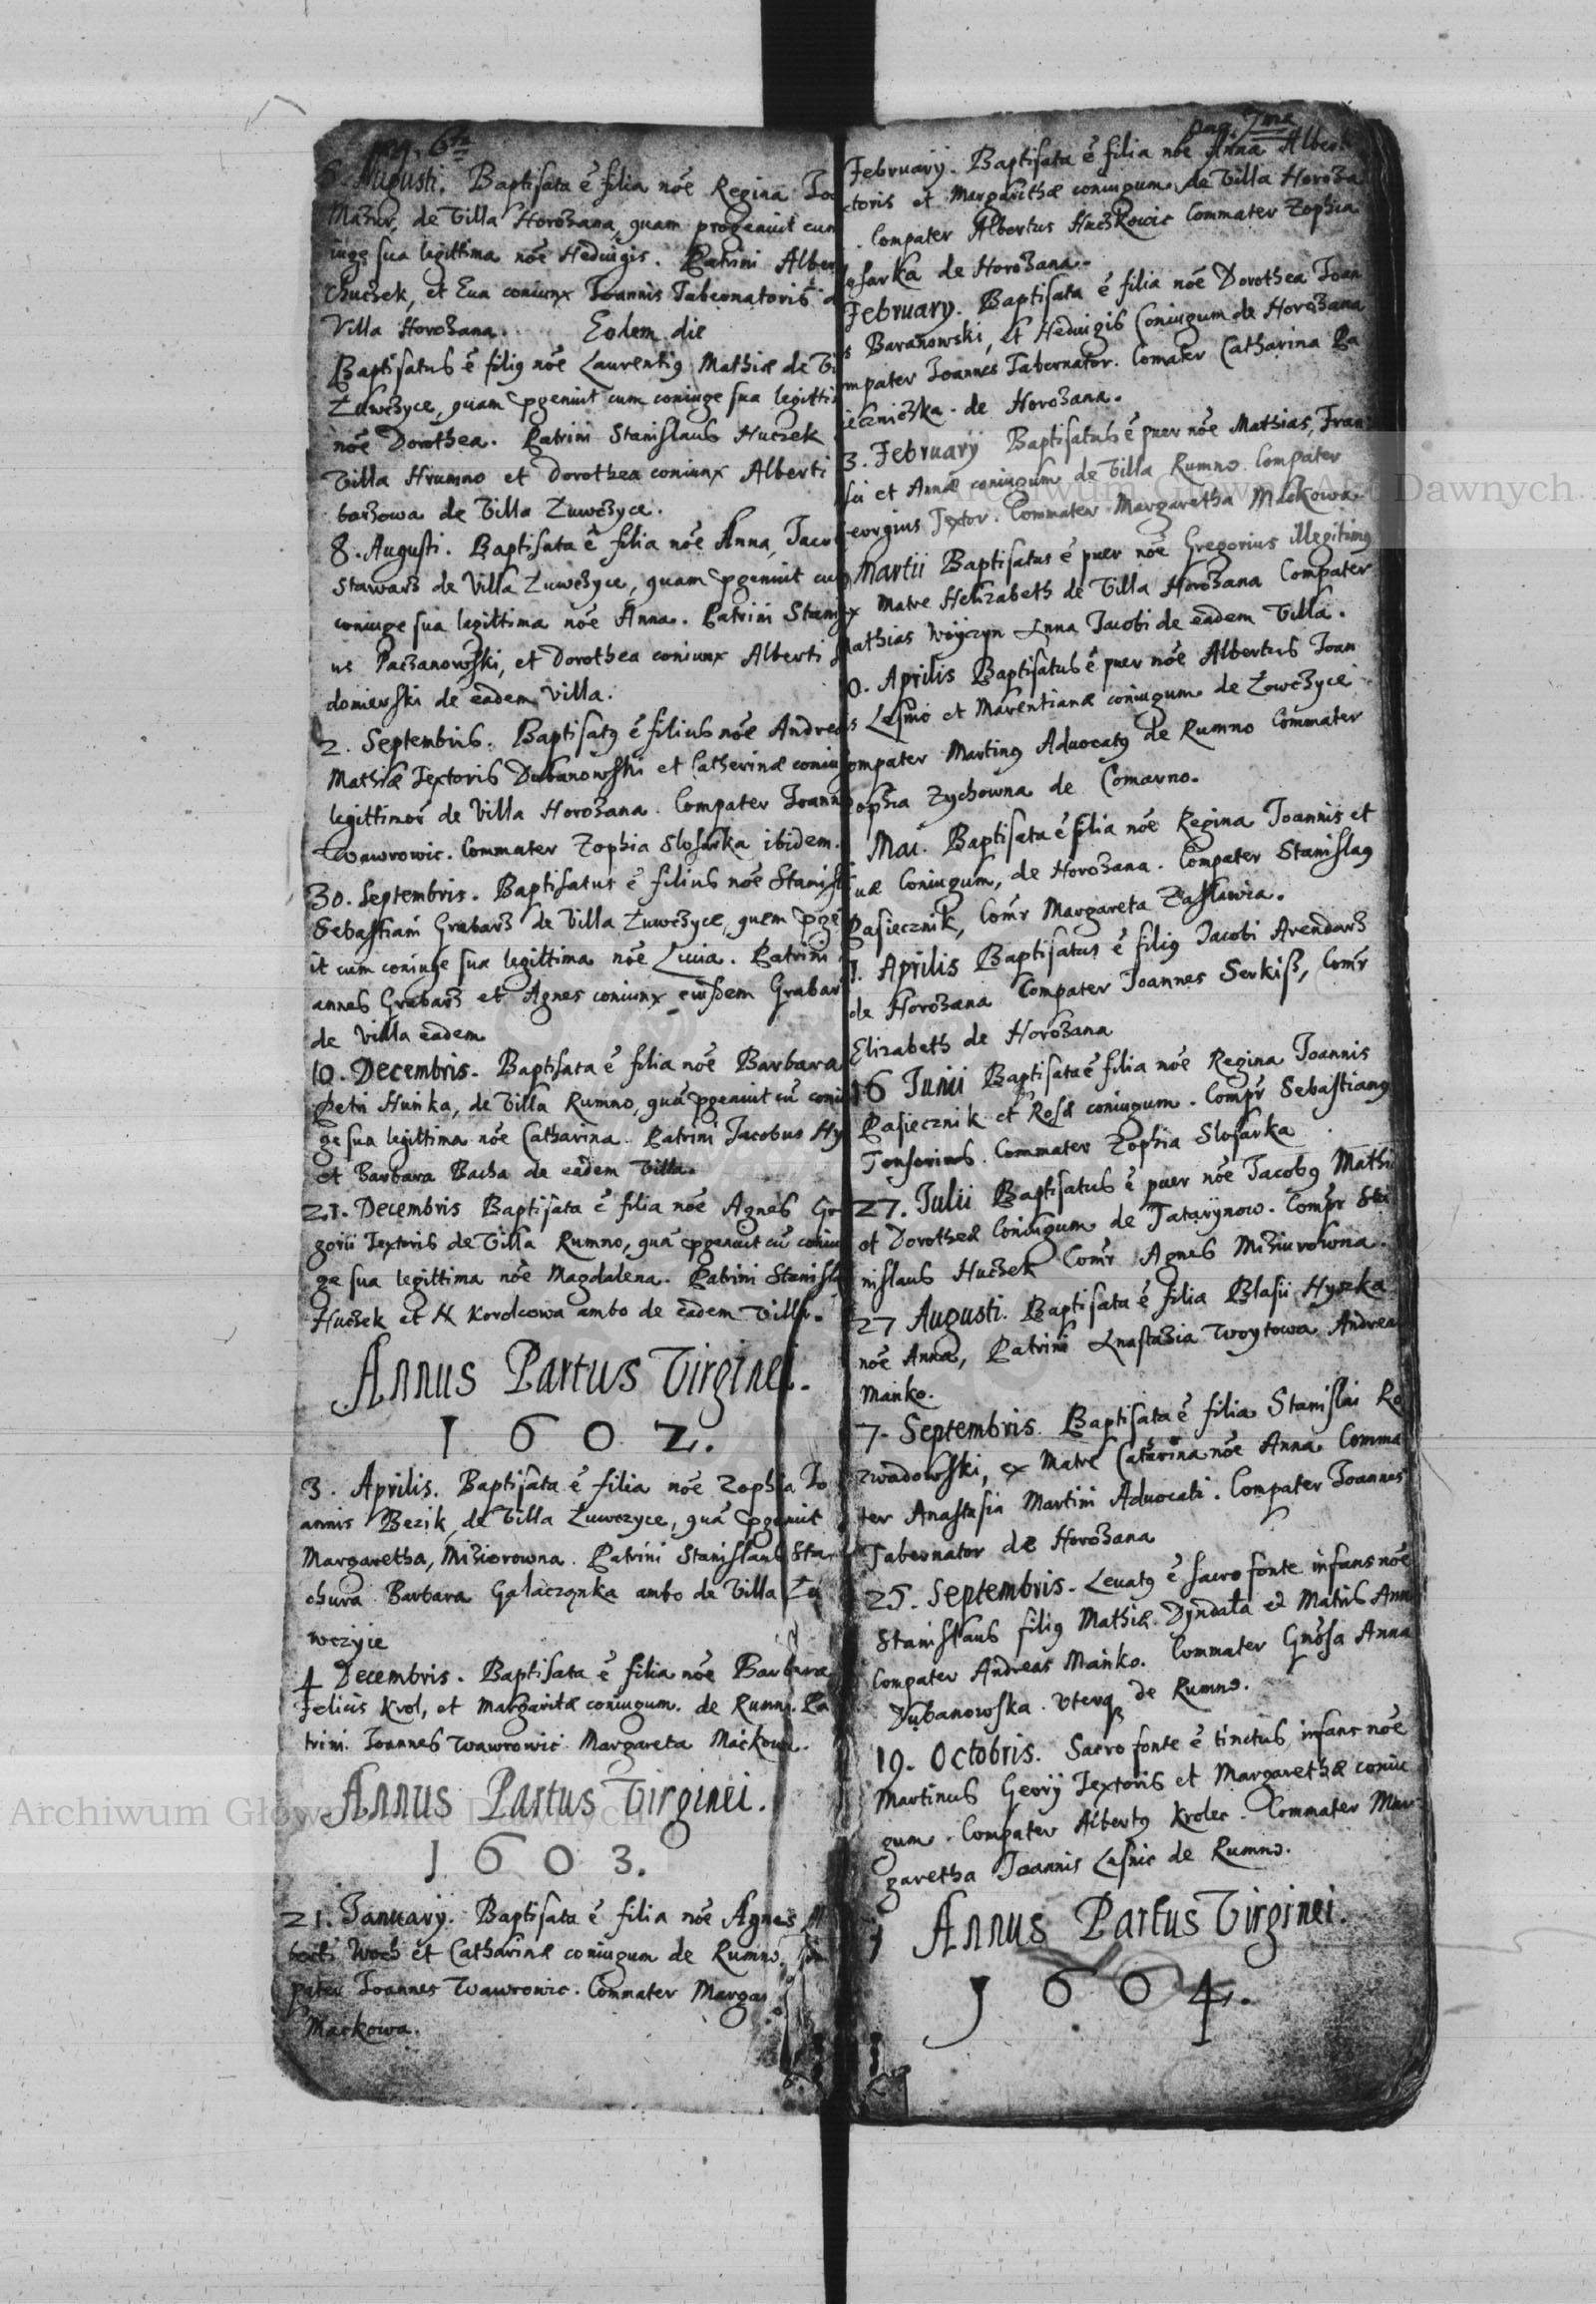 pag. 6ta
6. Augusti. Baptisata ē filia nōe Regina Joa
Mazur, de Villa Horozana, quam progenuit cum
iuge sua legittima nōe Hedwigis. Patrini Alber
Chuczek, et Eua coniunx Joannis Tabernatoris
Villa Horozana. Eodem die
Baptisatus ē filiꝯ nōe Laurentiꝯ Mathiæ de Vi
Zuwczyce, quam ꝓgenuit cum coniuge sua legitti
nōe Dorothea. Patrini Stanislaus Huczek
Villa Hrumno et Dorothea coniunx Alberti
barzowa de Villa Zuwczyce.
8. Augusti. Baptisata ē filia nōe Anna, Jaco
Stawarz de Villa Zuwczyce, quam ꝓgenuit cu
coniuge sua legittima nōe Anna. Patrini Stanis
us Paczanowski, et Dorothea coniunx Alberti
domierski de eadem Villa.
2. Septembris. Baptisatꝯ ē filius nōe Andreas
Mathiæ Textoris Dubanowski et Catherinæ coniu
legittimor̄ de Villa Horozana. Compater Joann
Wawrowic. Commater Zophia Slosarka ibidem.
30. Septembris. Baptisatus ē filius nōe Stanisl
Sebastiani Grabarz de Villa Zuwczyce, quem ꝓge
it cum coniuge sua legittima nōe Luiia. Patrini
annes Grabarz et Agnes coniunx eiusdem Grabar
de Villa eadem
10. Decembris. Baptisata ē filia nōe Barbara
Petri Hunka, de Villa Rumno, quā ꝓgenuit cū coniu
ge sua legittima nōe Catharina. Patrini Jacobus Hy
et Barbara Bacha de eadem Villa.
21. Decembris Baptisata ē filia nōe Agnes Gre
gorii Textoris de Villa Rumno, quā ꝓgenuit cū coniu
ge sua legittima nōe Magdalena. Patrini Stanisla
Huczek et N Korolcowa ambo de eadem Villa.
Annus Partus Virginei.
1602.
3. Aprilis. Baptisata ē filia nōe Zophia Jo
annis Bezik, de Villa Zuwczyce, quā ꝓgenuit
Margaretha, Miziorowna. Patrini Stanislaus Sta
chura Barbara Galaczonka ambo de Villa Zu
wczyie
4 Decembris. Baptisata ē filia nōe Barbara
Felicis Krol, et Margaritæ coniugum. de Rumno. Pa
trini. Joannes Wawrowic Margareta Mackowa.
Annus Partus Virginei.
1603.
21. January. Baptisata ē filia nōe Agnes Al
berti Woch et Catharinæ coniugum de Rumno. Com
pater Joannes Wawrowic. Commater Margar
Mackowa.
pag. 7ma
February. Baptisata ē filia nōe Anna Alberti
ctoris et Margarethæ coniugum de Villa Horoza
. Compater Albertus Huczkowic Commater Zophia
osarka de Horozana.
February. Baptisata ē filia nōe Dorothea Joan
s Baranowski, et Hedwigis Coniugum de Horozana
mpater Joannes Tabernator. Comater Catharina Pa
ieczniczka. de Horozana.
3. February Baptisatus ē puer nōe Mathias, Fran
sci et Annæ coniugum de Villa Rumno. Compater
eorgius Textor. Commater Margaretha Mackowa.
Martii Baptisatus ē puer nōe Gregorius illegitimꝯ
ex Matre Helizabeth de Villa Horozana Compater
Mathias Woyczyn Anna Jacobi de eadem Villa.
0. Aprilis Baptisatus ē puer nōe Albertus Joan
s Lesnio et Marentianæ coniugum de Zowczyce
ompater Martinꝯ Advocatꝯ de Rumno Commater
ophia Zychowna de Comarno.
Mai. Baptisata ē filia nōe Regina Joannis et
uæ Coniugum, de Horozana. Compater Stanislaꝯ
Pasiecznik, Com̄r Margareta Zaslawia.
1. Aprilis Baptisatus ē filiꝯ Jacobi Arendarz
de Horozana Compater Joannes Serkiss, Com̄r
Elizabeth de Horozana
16 Junii Baptisata ē filia nōe Regina Joannis
Pasiecznik et Rosæ coniugum. Comp̄r Sebastianꝯ
Tonsorinos. Commater Zophia Slosarka
27. Julii Baptisatus ē puer nōe Jacobꝯ Mathi
et Dorotheæ Coniugum de Tatarynow. Comp̄r Sta
nislaus Huczek Com̄r Agnes Miziurowna.
27 Augusti. Baptisata ē filia Blasii Hyszka
nōe Anna, Patrini Anastazia Woytowa Andreas
Manko.
7. Septembris. Baptisata ē filia Stanislai Ro
zwadowski, ex Matre Catarina nōe Anna. Comma
ter Anastasia Martini Advocati. Compater Joannes
Tabernator de Horozana
25. Septembris. Levatꝯ ē sacro fonte infans nōe
Stanislaus filiꝯ Mathiæ Dyndała et Matris Annæ
Compater Andreas Manko. Commater Gn̄osa Anna
Dubanowska. Vterqꝫ de Rumno.
19. Octobris. Sacro fonte ē tinctus infans nōe
Martinus Georÿ Textoris et Margarethæ coniu
gum. Compater Albertꝯ Krolec. Commater Mar
garetha Joannis Lasnic de Rumno.
Annus Partus Virginei.
1604.
Archiwum Główne Akt Dawnych
Archiwum Główne Akt Dawnych